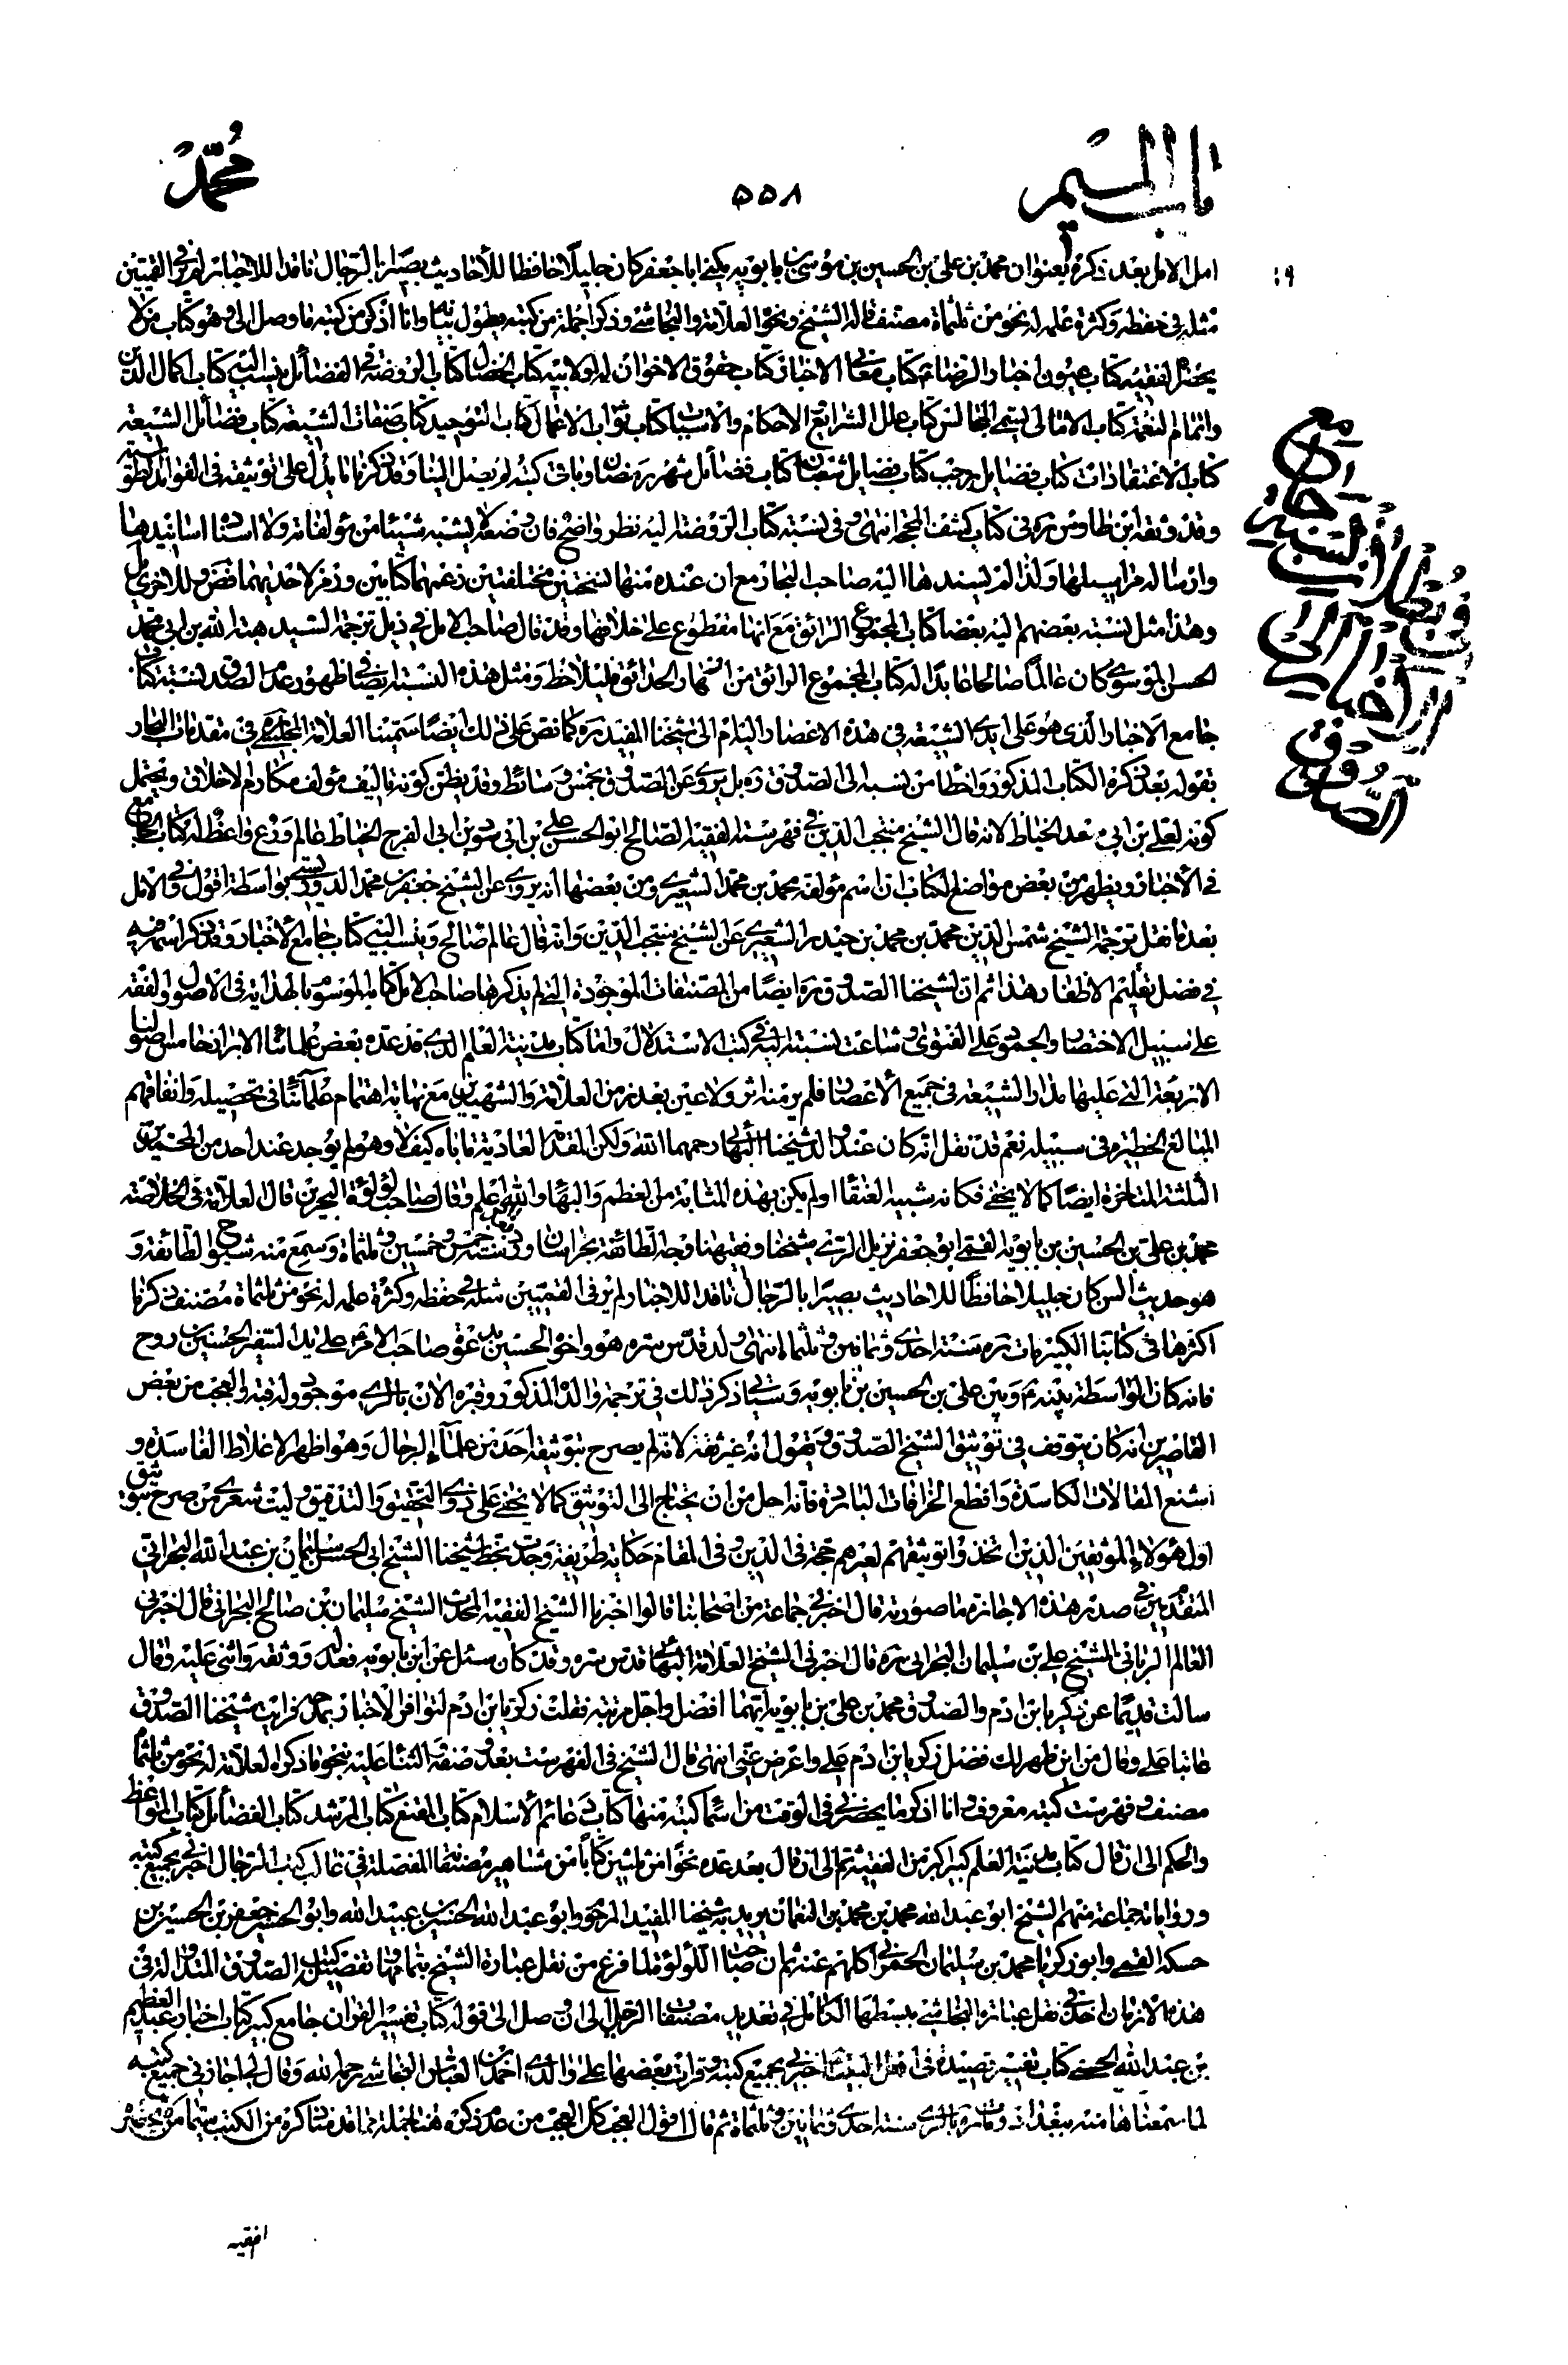 باب الميم
۵۵۸
محمد
امل الامل بعد ذكره بعنوان محمد بن علي بن الحسين بن موسى بن بابويه يكنى ابا جعفر كان جليلا حافظا للأحاديث بصيرا بالرجال ناقدا للاخبار لم ير في القميين
مثله في حفظه وكثرة علمه له نحو من ثلثمأة مصنف قاله الشيخ ونحوه العلامة والنجاشي وذكرا جملة من كتبه يطول بيانها وانا اذكر من كتبه ما وصل الي وهو كتاب من لا
يحضره الفقيه كتاب عيون اخبار الرضا ع كتاب معاني الاخبار كتاب حقوق الاخوان له او لابيه كتاب الخصال كتاب الروضة في الفضائل ينسب اليه كتاب اكمال الدين
واتمام النعمة كتاب الامالي يسمى المجالس كتاب علل الشرايع الاحكام والاسباب كتاب ثواب الاعمال كتاب التوحيد كتاب صفات الشيعة كتاب فضائل الشيعة
كتاب الاعتقادات كتاب فضايل رجب كتاب فضايل شعبان كتاب فضائل شهر رمضان وباقي كتبه لم يصل الينا وقد ذكرنا ما يدل على توثيقه في الفوائد الطوسية
وقد وثقه ابن طاوس ره في كتاب كشف المحجة انتهى وفي نسبة كتاب الروضة اليه نظر واضح فان وضعه لا يشبه شيئا من مؤلفاته ولا اسنادها اسانيدها
وارساله مراسيلها ولذا لم يسندها اليه صاحب البحار مع ان عنده منها نسختين مختلفتين زعمهما كتابين ورمز لاحديهما فض وللاخرى يل
وهذا مثل نسبة بعضهم اليه بعضا كتاب المجموع الرائق مع انها مقطوع على خلافها وقد قال صاحب الامل في ذيل ترجمة السيد هبة الله بن ابي محمد
الحسن الموسوي كان عالما صالحا عابدا له كتاب المجموع الرائق من ازهار الحدائق فليلاحظ ومثل هذه النسبة ايضا في ظهور عدم الصدق نسبة كتاب
جامع الاخبار الذي هو على ايدي الشيعة في هذه الاعصار اليه ام الى شيخنا المفيد ره كما نص على ذلك ايضا سمينا العلامة المجلسي ره في مقدمات البحار
بقوله بعد ذكره الكتاب المذكور واخطأ من نسبه الى الصدوق ره بل يروي عن الصدوق بخمس وسائط وقد يظن كونه تاليف مؤلف مكارم الاخلاق ويحتمل
كونه لعلي بن ابي سعد الخياط لانه قال الشيخ منتجب الدين في فهرسته الفقيه الصالح ابو الحسن علي بن ابي سعد بن ابي الفرج الخياط عالم ورع واعظ له كتاب الجامع
في الأخبار ويظهر من بعض مواضع الكتاب ان اسم مؤلفه محمد بن محمد الشعيري ومن بعضها انه يروي عن الشيخ جعفر بن محمد الدوريستي بواسطة اقول وفي الامل
بعد ما نقل ترجمة الشيخ شمس الدين محمد بن محمد بن حيدر الشعيري عن الشيخ منتجب الدين وانه قال عالم صالح وينسب اليه كتاب جامع الأخبار وقد ذكر اسمه فيه
في فصل تقليم الاظفار هذا ثم ان لشيخنا الصدوق ره ايضا من المصنفات الموجودة التي لم يذكرها صاحب الامل كتابه الموسوم بالهداية في الاصول والفقه
على سبيل الاختصار والجمود على الفتوى وشاعت نسبته اليه في كتب الاستدلال واما كتاب مدينة العلم الذي قد عده بعض علمائنا الابرار خامس اصولنا
الاربعة التي عليها مدار الشيعة في جميع الأعصار فلم ير منه اثر ولا عين بعد زمن العلامة والشهيدين مع نهاية اهتمام علمائنا في تحصيله وانفاقهم
المبالغ الخطيرة في سبيله نعم قد نقل انه كان عند والد شيخنا البهائي رحمهما الله ولكن المقدمة العادية تاباه كيف لا وهو لم يوجد عند احد من المحمدين
الثلثة المتاخرة ايضا كما لا يخفى فكانه شبيه العنقا او لم يكن بهذه المثابة من العظم والبهاء والله اعلم وقال صاحب لؤلؤة البحرين قال العلامة في الخلاصة
محمد بن علي بن الحسين بن بابويه القمي ابو جعفر نزيل الري شيخنا وفقيهنا وجه الطائفة بخراسان ورد بغداد سنة خمس وخمسين وثلثمأة وسمع منه شيوخ الطائفة و
هو حديث السن كان جليلا حافظا للاحاديث بصيرا بالرجال ناقدا للاخبار لم ير في القميين مثله في حفظه وكثرة علمه له نحو من ثلثمأة مصنف ذكرنا
اكثرها في كتابنا الكبير مات ره سنة احدى وثمانين وثلثمأة انتهى ولد قدس سره هو واخوه الحسين بدعوة صاحب الامر ع على يد السفير الحسين بن روح
فانه كان الواسطة بينه ع وبين علي بن الحسين بن بابويه وسياتي ذكر ذلك في ترجمة والده المذكور وقبره الآن بالري موجود وله قبة والعجب من بعض
القاصرين انه كان يتوقف في توثيق الشيخ الصدوق ويقول انه غير ثقة لانه لم يصرح بتوثيقه احد من علماء الرجال وهو اظهر الاغلاط الفاسدة و
اشنع المقالات الكاسدة وافظع الخرافات البائرة فانه اجل من ان يحتاج الى التوثيق كما لا يخفى على ذوي التحقيق والتدقيق وليت شعري من صرح بتوثيق
اول هؤلاء الموثقين الذين اتخذوا توثيقهم لغيرهم حجة في الدين وفي المقام حكاية طريفة وجدت بخط شيخنا الشيخ ابي الحسن سليمان بن عبد الله البحراني
المتقدم في صدر هذه الاجازة ما صورته قال اخبرني جماعة من اصحابنا قالوا اخبرنا الشيخ الفقيه المحدث الشيخ سليمان بن صالح البحراني قال اخبرني
العالم الرباني الشيخ علي بن سليمان البحراني ره قال اخبرني الشيخ العلامة البهائي قدس سره وقد كان سئل عن ابن بابويه فعدله ووثقه واثنى عليه وقال
سالت قديما عن زكريا بن ادم والصدوق محمد بن علي بن بابويه ايهما افضل واجل مرتبة فقلت زكريا بن ادم لتوافر الاخبار بمدحه فرايت شيخنا الصدوق
عاتبا علي وقال من اين ظهر لك فضل زكريا بن ادم علي واعرض عني انتهى قال الشيخ في الفهرست بعد وصفه والثناء عليه بنحو ما ذكره العلامة له نحو من ثلثمأة
مصنف وفهرست كتبه معروف وانا اذكر ما يحضرني في الوقت من اسماء كتبه منها كتاب دعائم الأسلام كتاب المقنع كتاب المرشد كتاب الفضائل كتاب المواعظ
والحكم الى ان قال كتاب مدينة العلم كبير اكبر من الفقيه ثم الى ان قال بعد عده نحوا من ثلثين كتابا من مشاهير مصنفاته المفصلة في غالب كتب الرجال اخبرني بجميع كتبه
ورواياته جماعة منهم الشيخ ابو عبد الله محمد بن محمد بن النعمان يريد به شيخنا المفيد المرحوم وابو عبد الله الحسين بن عبيد الله وابو الحسين جعفر بن الحسن بن
حسكه القمي وابو زكريا محمد بن سليمان الحمراني كلهم عنه ثم ان صاحب اللؤلؤة لما فرغ من نقل عبارة الشيخ بتمامها وتفصيل كتب الصدوق المتداولة في
هذه الازمان اخذ في نقل عبارة النجاشي بسطها الكامل في تعديد مصنفات الرجل الى ان وصل الى قوله كتاب تفسير القرآن جامع كبير كتاب اخبار عبد العظيم
بن عبد الله الحسني كتاب تفسير قصيدة في اهل البيت ع اخبرني بجميع كتبه وقرات بعضها على والدي احمد بن العباس النجاشي رحمه الله وقال لي اجازني جميع كتبه
لما سمعناها منه ببغداد ومات ره بالري سنة احدى وثمانين وثلثمأة ثم قال اقول العجب كل العجب من عدم ذكره هنا لجملة مما قدمنا ذكره من الكتب سيما من لا يحضره
الفقيه
جامع الاخبار
الى الصدوق